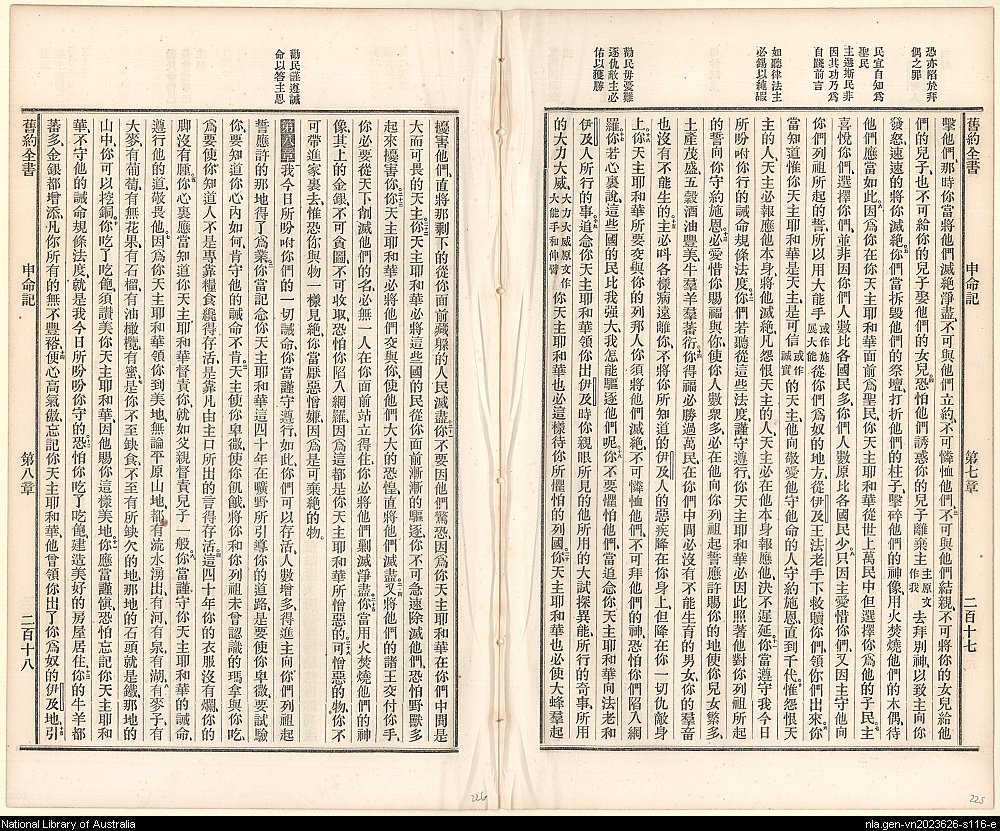 恐亦陷於拜
偶之罪
民宜自知為
聖民
主選斯民非
因其功乃為
自踐前言
如聽律法主
必錫以純嘏
勸民毋憂難
逐仇敵主必
佑以獲勝
舊約全書 申命記 第七章 二百十七
擊他們、那時你當將他們滅絕淨盡、不可與他們立約、不可憐恤他們、不可與他們結親、不可將你的女兒給他
們的兒子、也不可給你的兒子娶他們的女兒、恐怕他們誘惑你的兒子離棄主主原文作我去拜別神、以致主向你
發怒、速速的將你滅絕、你們當拆毀他們的祭壇、打折他們的柱子、擊碎他們的神像、用火焚燒他們的木偶、待
他們應當如此、因為你在你天主耶和華面前為聖民、你天主耶和華從世上萬民中、但選擇你為他的子民、主
喜悅你們、選擇你們、並非因你們人數比各國民多、你們人數原比各國民少、只因主愛惜你們、又因主守他向
你們列祖所起的誓、所以用大能手或作施展大能從你們為奴的地方、從伊及王法老手下救贖你們、領你們出來、你
當知道惟你天主耶和華是天主、是可信或作誠實的天主、他向敬愛他守他命的人、守約施恩、直到千代、惟怨恨天
主的人、天主必報應他本身、將他滅絕、凡怨恨天主的人、天主必在他本身報應他、決不遲延、你當遵守我今日
所吩咐你行的誡命規條法度、你們若聽從這些法度、謹守遵行、你天主耶和華必因此照著他對你列祖所起
的誓、向你守約施恩、必愛惜你、賜福與你、使你人數衆多、必在他向你列祖起誓應許賜你的地、使你兒女繁多、
土產茂盛、五穀酒油豐美、牛羣羊羣蕃衍、你得福必勝過萬民、在你們中間必沒有不能生育的男女、你的羣畜
也沒有不能生的、主必叫各樣病遠離你、不將你所知道的伊及人的惡疾降在你身上、但降在你一切仇敵身
上、你天主耶和華所要交與你的列邦人、你須將他們滅絕、不可憐恤他們、不可拜他們的神、恐怕你們陷入網
羅、你若心裏說、這些國的民比我強大、我怎能驅逐他們呢、你不要懼怕他們、當追念你天主耶和華向法老和
伊及人所行的事、追念你天主耶和華領你出伊及時、你親眼所見的他所用的大試探異能所行的奇事、所用
的大力大威、大力大威原文作大能手和伸臂你天主耶和華也必這樣待你所懼怕的列國、你天主耶和華也必使大蜂羣起
勸民謹遵誡
命以答主恩
擾害他們、直將那剩下的從你面前藏躲的人民滅盡、你不要因他們驚恐、因為你天主耶和華在你們中間、是
大而可畏的天主、你天主耶和華必將這些國的民從你面前漸漸的驅逐、你不可急速除滅他們、恐怕野獸多
起來擾害你、你天主耶和華必將他們交與你、使他們大大的恐惶、直將他們滅盡、又將他們的諸王交付你手、
你必要從天下削滅他們的名、必無一人在你面前站立得住、你必將他們剿滅淨盡、你當用火焚燒他們的神
像、其上的金銀、不可貪圖、不可收取、恐怕你陷入網羅、因為這都是你天主耶和華所憎惡的、可憎惡的物、你不
可帶進家裏去、惟恐你與物一樣見絕、你當厭惡憎嫌、因為是可棄絕的物。
第八章我今日所吩咐你們的一切誡命、你當謹守遵行、如此你們可以存活、人數增多、得進主向你們列祖起
誓應許的那地、得了為業、你當記念你天主耶和華這四十年在曠野所引導你的道路、是要使你卑微、要試驗
你、要知道你心內如何、肯守他的誡命不肯、天主使你卑微、使你飢餓、將你和你列祖未曾認識的瑪拿與你吃、
為要使你知道人不是專靠糧食纔得存活、是靠凡由主口所出的言得存活、這四十年你的衣服沒有爛、你的
脚沒有腫、你心裏應當知道你天主耶和華督責你、就如父親督責兒子一般、你當謹守你天主耶和華的誡命、
遵行他的道、敬畏他、因為你天主耶和華領你到美地、無論平原山地、都有流水湧出、有河有泉有湖、有麥子、有
大麥、有葡萄、有無花果、有石榴、有油橄欖、有蜜、是你不至缺食、不至有所缺欠的地、那地的石頭就是鐵、那地的
山中、你可以挖銅、你吃了吃飽、須讚美你天主耶和華、因他賜你這樣美地、你應當謹慎、恐怕忘記你天主耶和
華、不守他的誡命規條法度、就是我今日所吩咐你守的、恐怕你吃了吃飽、建造美好的房屋居住、你的牛羊都
蕃多、金銀都增添、凡你所有的無不豐裕、便心高氣傲、忘記你天主耶和華、他曾領你出了你為奴的伊及地、引
舊約全書 申命記 第八章 二百十八
226
225
National Library of Australia
nla.gen-vn2023626-s116-e